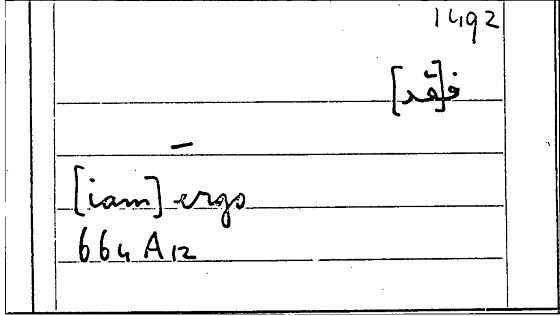 1492
ف[قد]
–
[iam] ergo
664 A 12